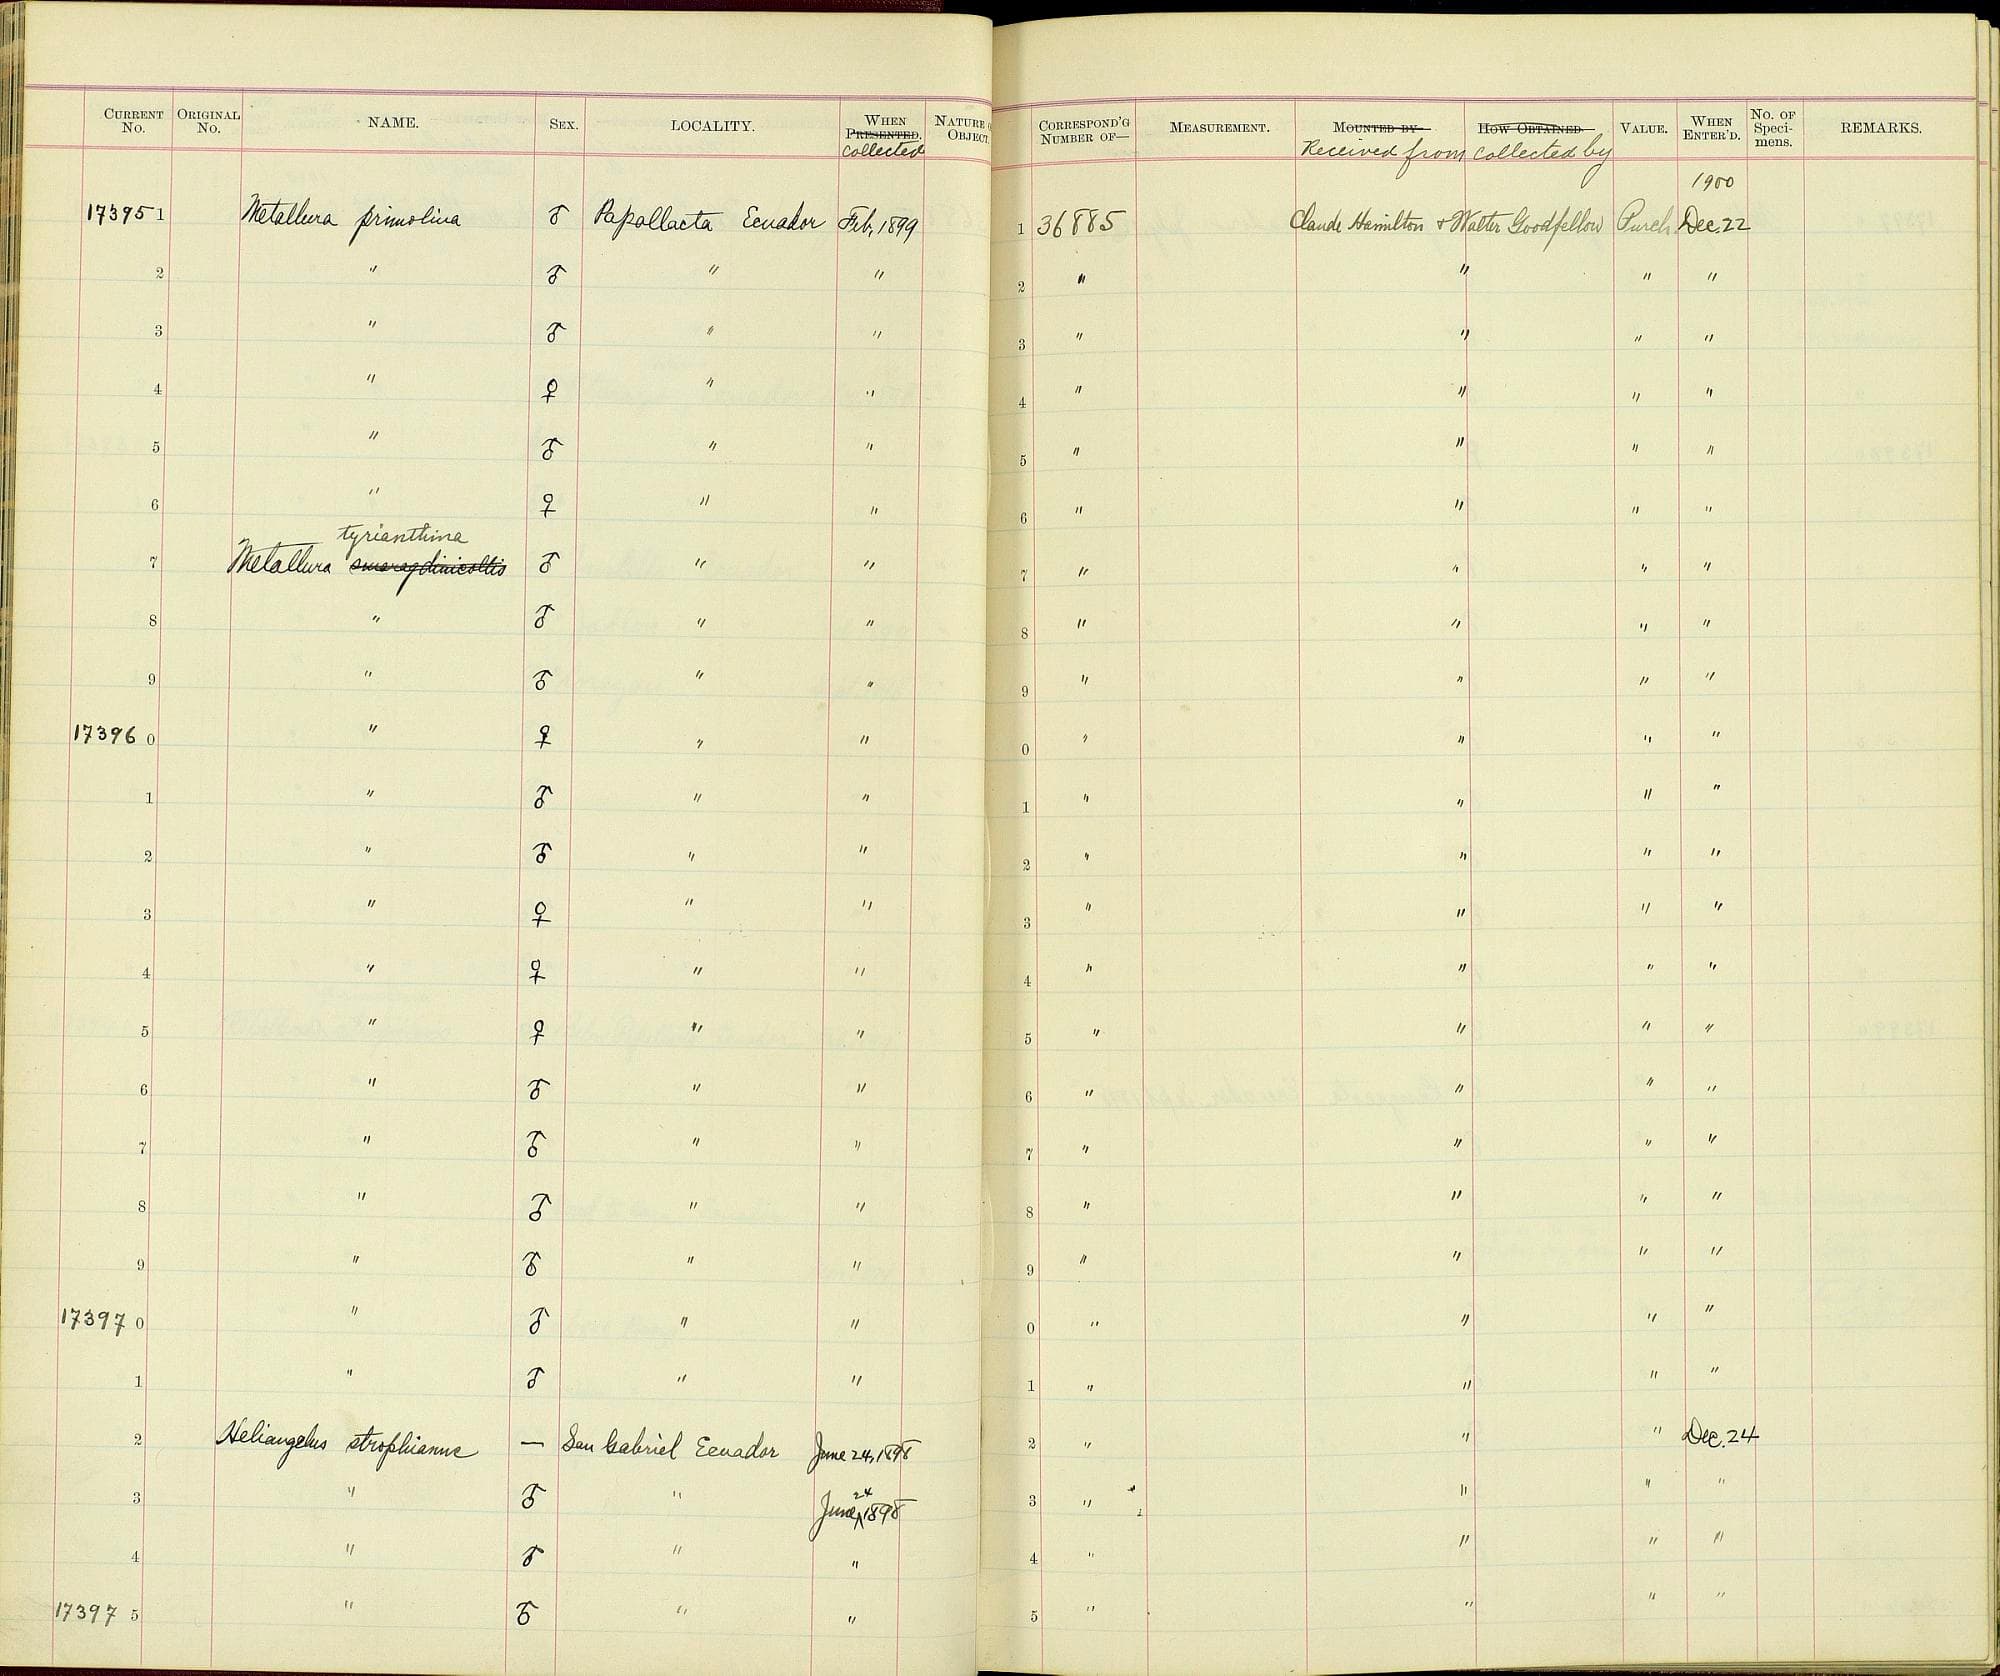 CURRENT No. ORIGINAL No. NAME. SEX. LOCALITY. WHEN PRESENTED. collected NATURE OBJECT. CORRESPOND'G NUMBER OF— MEASUREMENT. MOUNTED BY Received from HOW OBTAINED collected by VALUE. WHEN ENTER'D. No. OF Speci-mens. REMARKS.
1900
17395 1 Metallura primolina ♂ Papallacta Ecuador Feb, 1899 1 36885 Claude Hamilton & Walter Goodfellow Purch. Dec. 22
2 " ♂ " " 2 " " " "
3 " ♂ " " 3 " " " "
4 " ♀ " " 4 " " " "
5 " ♂ " " 5 " " " "
6 " ♀ " " 6 " " " "
tyrianthina
7 Metallura smaragdinicollis ♂ " " 7 " " " "
8 " ♂ " " 8 " " " "
9 " ♂ " " 9 " " " "
17396 0 " ♀ " " 0 " " " "
1 " ♂ " " 1 " " " "
2 " ♂ " " 2 " " " "
3 " ♀ " " 3 " " " "
4 " ♀ " " 4 " " " "
5 " ♀ " " 5 " " " "
6 " ♂ " " 6 " " " "
7 " ♂ " " 7 " " " "
8 " ♂ " " 8 " " " "
9 " ♂ " " 9 " " " "
17397 0 " ♂ " " 0 " " " "
1 " ♂ " " 1 " " " "
2 Heliangelus strophianus — San Gabriel Ecuador June 24, 1898 2 " " " Dec. 24
3 " ♂ " June 24 1898 3 " " " "
4 " ♂ " " 4 " " " "
17397 5 " ♂ " " 5 " " " "